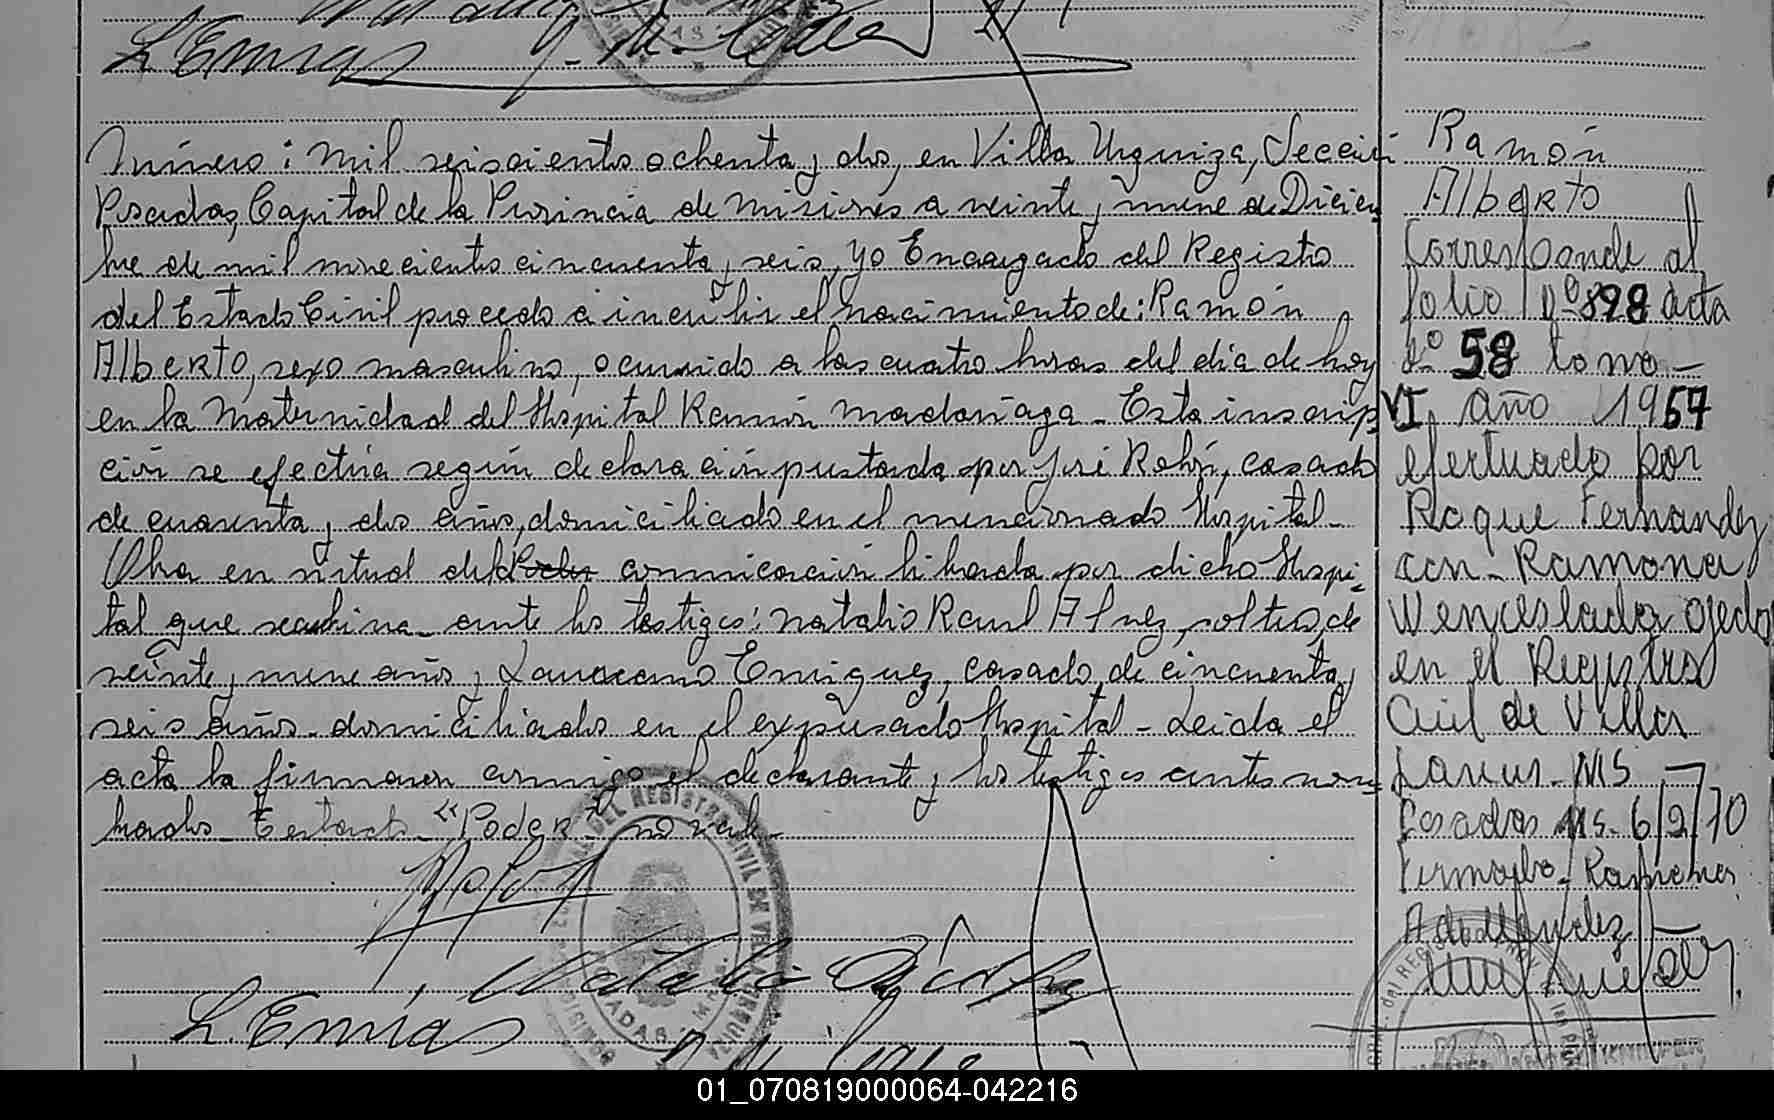 L Emias
Número: Mil seiscientos ochenta y dos, en Villa Urquiza, Sección
Posadas, Capital de la Provincia de Misiones a veinte y nueve de Diciem
bre de mil novecientos cincuenta y seis, yo Encargado del Registro
del Estado Civil procedo a inscribir el nacimiento de: Ramón
Alberto, sexo masculino, ocurrido a las cuatro horas del día de hoy
en la Maternidad del Hospital Ramón Madariaga - Esta inscrip
ción se efectúa según declaración prestada por José Rolón, casado
de cuarenta y dos años, domiciliado en el mencionado Hospital -
Obra en virtud del Poder comunicación librada por dicho Hospi-
tal que se archiva - ante los testigos: Natalio Raul seltero, de
veinte y nueve años y casado, de cincuenta y
seis años - domiciliados en el expresado Hospital - Leida el
acta la firmaron conmigo el declarante y los testigos antes nom-
brados - Testado - "Poder" no vale -
L. Emias
Ramón
Alberto
Corresponde al
folio Nº 898 acta
nº 58 tomo -
VI, año 1957
efectuado por
Roque Fernandez
con - Ramona
Wenceslada Ojeda
en el Registro
Civil de Villa
Lanus - MS -
Posadas Ms. 6/2/70
REGISTRO CIVIL DE VILLA URQUIZA
POSADAS - Mnes.
01_070819000064-042216